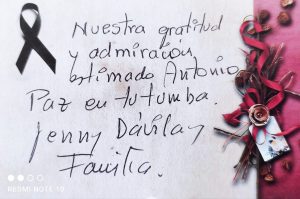 Nuestra gratitud
y admiración
estimado Antonio
Paz en tu tumba.
Jenny Dávila y
Familia.
REDMI NOTE 10